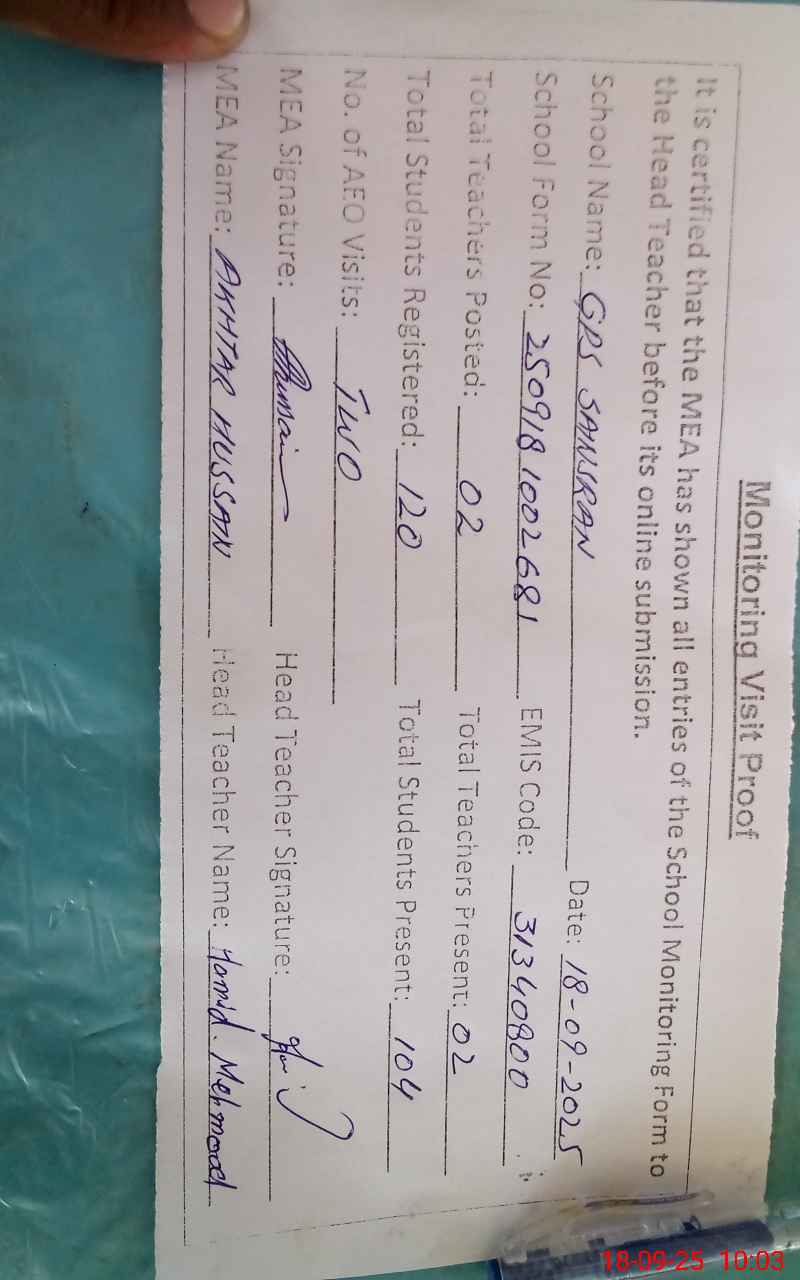 Monitoring Visit Proof
It is certified that the MEA has shown all entries of the School Monitoring Form to
the Head Teacher before its online submission.
School Name: GPS SANSRAN Date: 18-09-2025
School Form No: 250918 1002681 EMIS Code: 31340800
Total Teachers Posted: 02 Total Teachers Present: 02
Total Students Registered: 120 Total Students Present: 104
No. of AEO Visits: TWO
MEA Signature: Head Teacher Signature:
MEA Name: AKHTAR HUSSAIN Head Teacher Name: Hamid. Mehmood
18-09-25 10:03